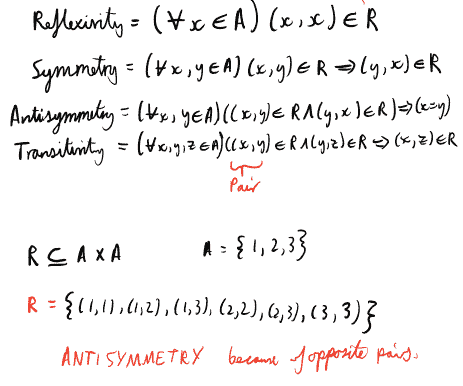 Reflexivity = (∀x∈A) (x,x)∈R
Symmetry = (∀x,y∈A) (x,y)∈R ⇒ (y,x)∈R
Antisymmetry = (∀x,y∈A)((x,y)∈R∧(y,x)∈R)⇒(x=y)
Transitivity = (∀x,y,z∈A)((x,y)∈R∧(y,z)∈R ⇒ (x,z)∈R
Pair
R ⊆ A x A A = {1,2,3}
R = {(1,1),(1,2),(1,3),(2,2),(2,3),(3,3)}
ANTISYMMETRY because of opposite pairs.